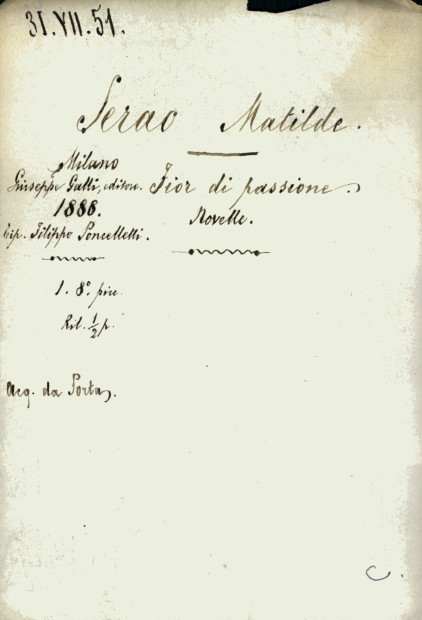 31.VII.51.
Serao Matilde.
Milano
Giuseppe Galli, editore.
1888.
Tip. Filippo Poncelletti.
Fior di passione.
Novelle.
1. 8º. picc.
Ril. 1/2 p.
Acq. da Porta.
C.